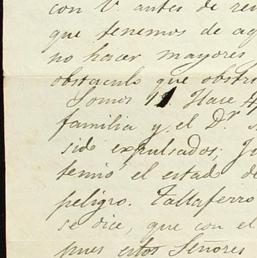 con V antes de
que tenemos de
no hacer mayores
obstaculo que
Somos 11 Hace
familia y el Dr
sido expulsados;
temio el estado de
peligro. Tallaferro
se dice, que con el
pues estos Señores